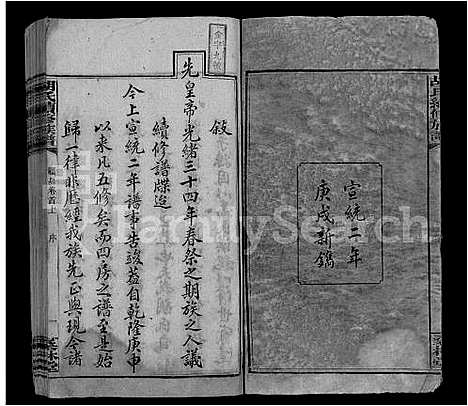 宣統二年
庚戌新鐫
敘
先皇帝光緒三十四年春祭之期族之人議
續修譜牒迨
今上宣統二年譜事告竣蓋自乾隆庚申
以來凡五修矣而四房之譜至是始
歸一律非歷經我族先正與現今諸
序
FamilySearch